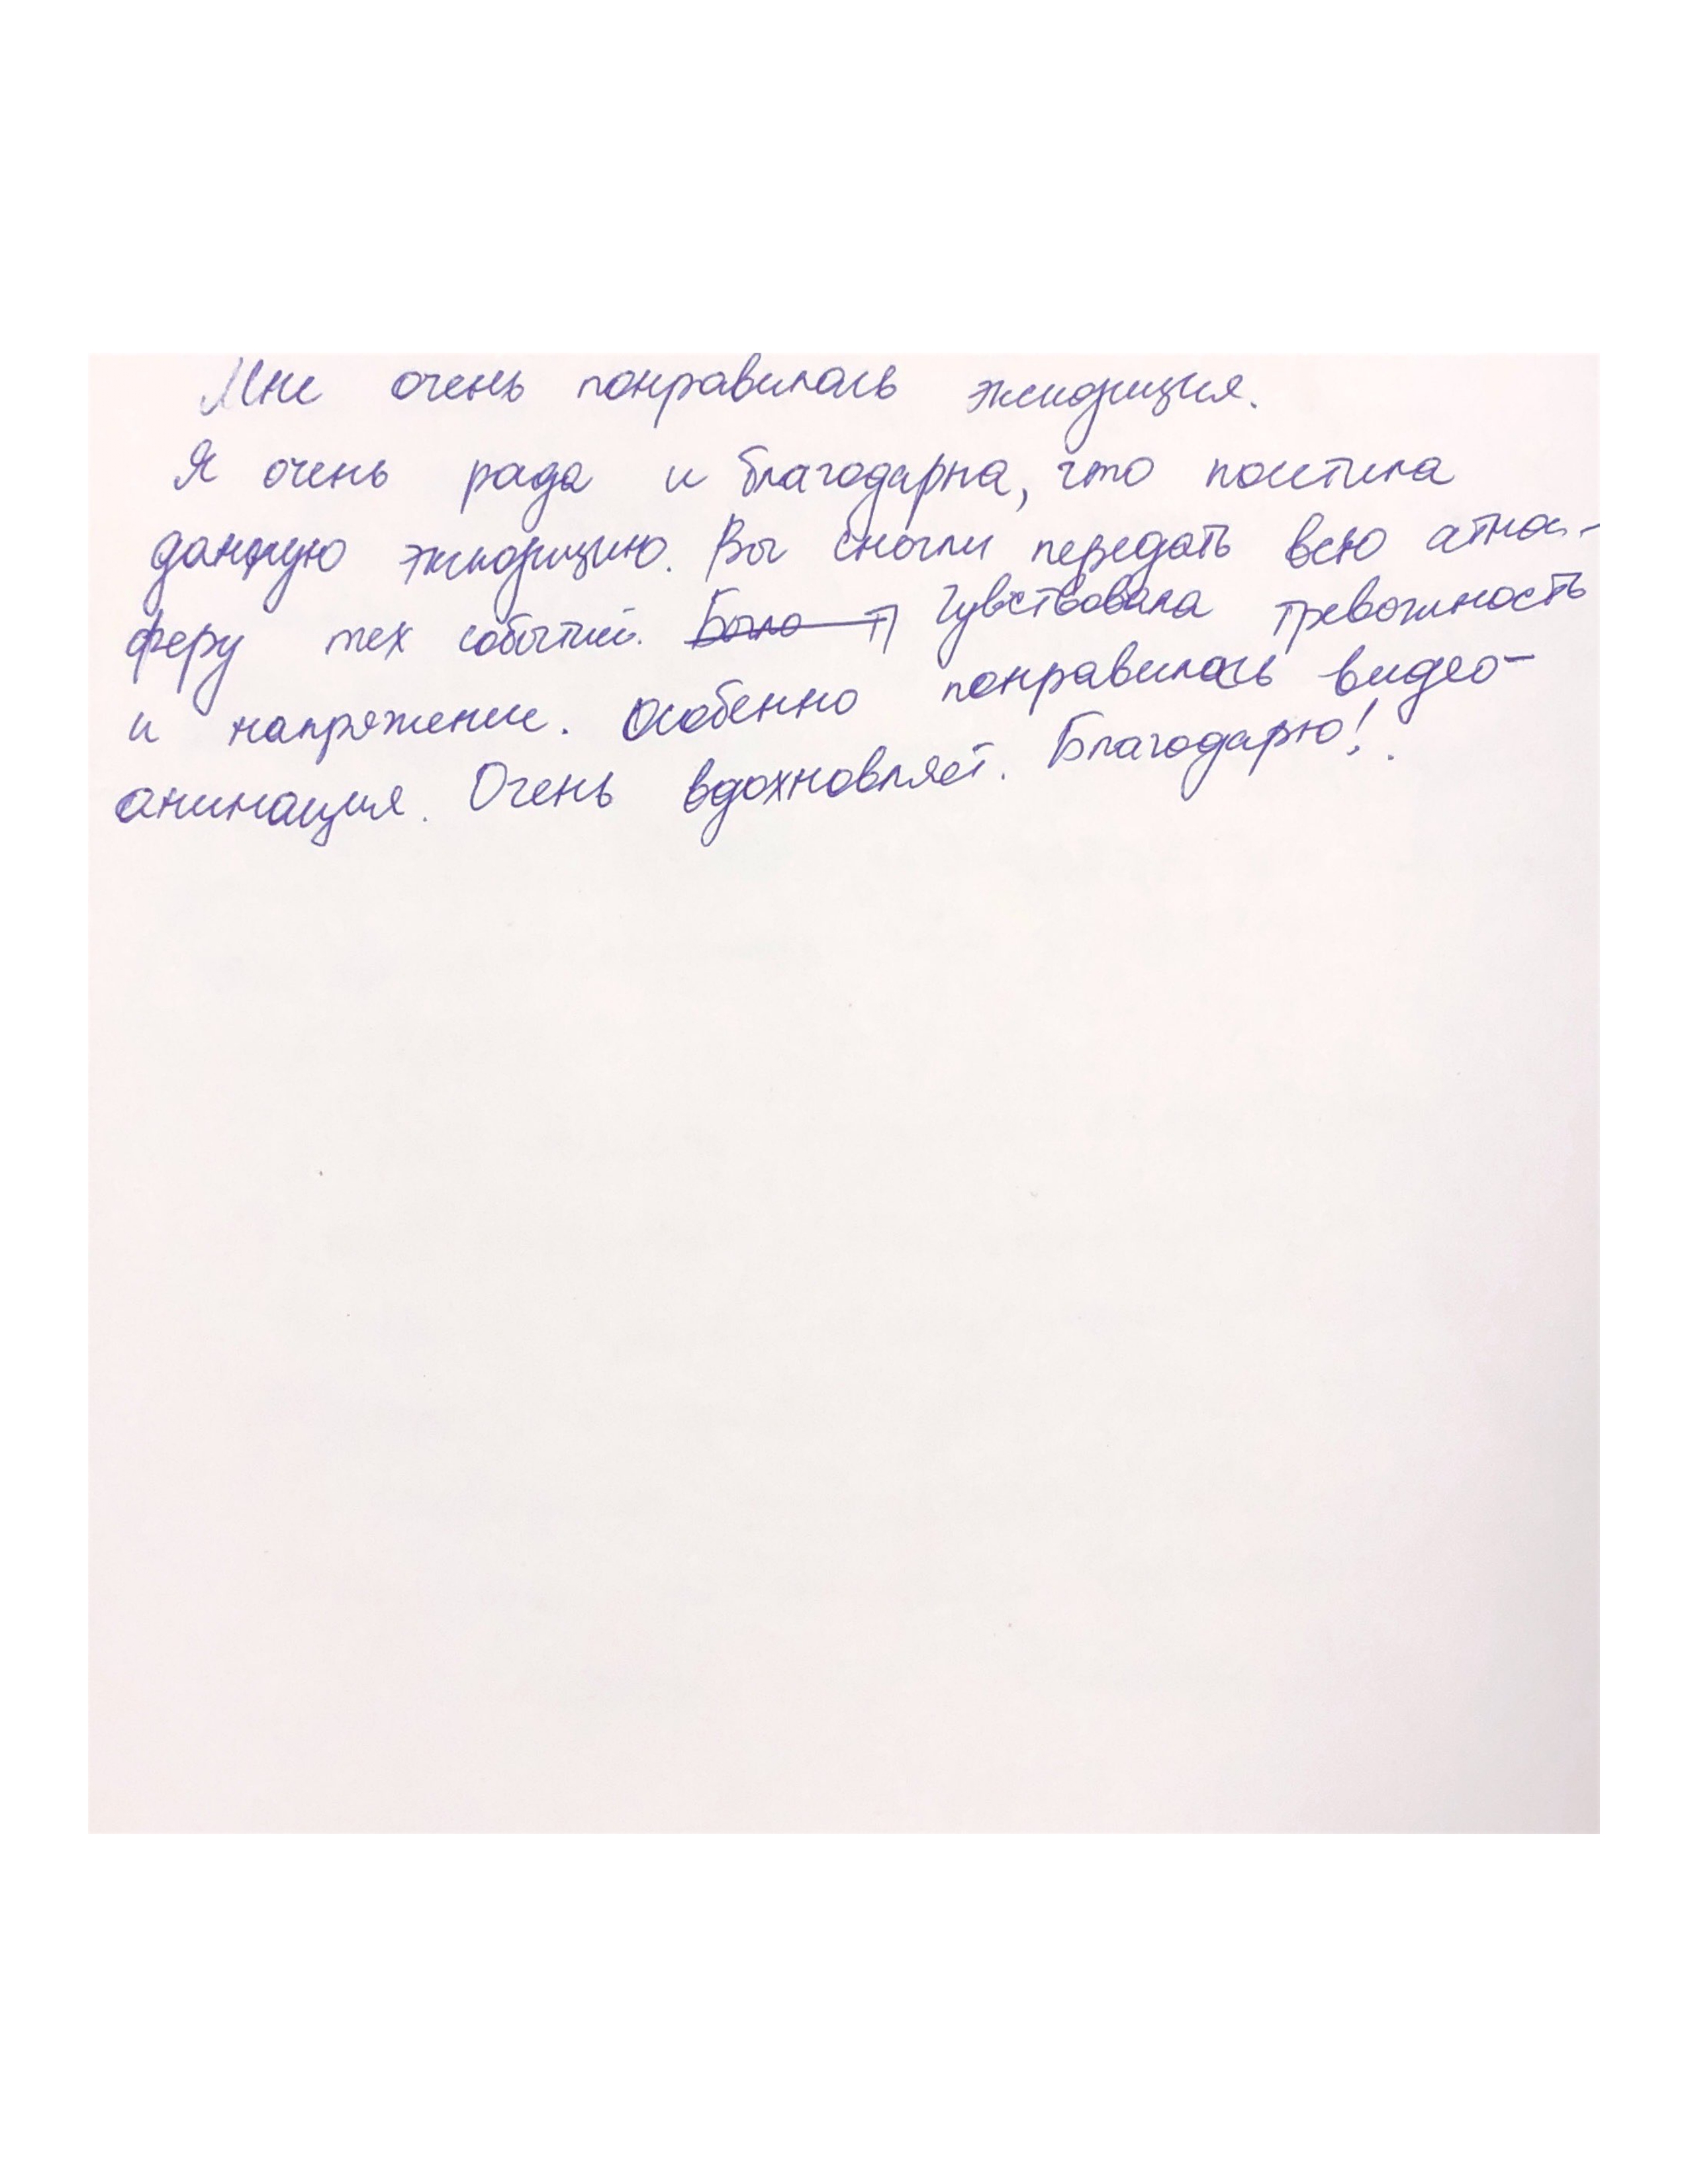 Мне очень понравилась экспозиция.
Я очень рада и благодарна, что посетила
данную экспозицию. Вы смогли передать всю атмос-
феру тех событий. Было т Чувствовала тревожность
и напряжение. Особенно понравилась видео-
анимация. Очень вдохновляет. Благодарю!.